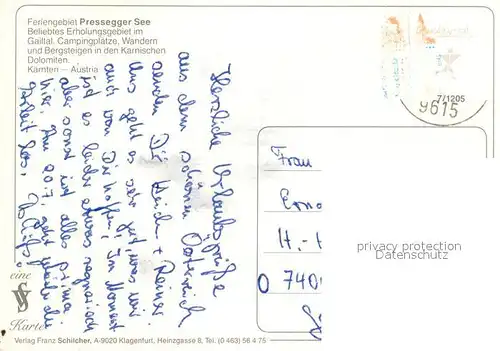 Feriengebiet Pressegger See
Beliebtes Erholungsgebiet im
Gailtal. Campingplätze, Wandern
und Bergsteigen in den Karnischen
Dolomiten.
Kärnten — Austria
Herzliche Urlaubsgrüße
aus dem schönen Österreich
senden Dir Heidi + Reiner
Uns geht es sehr gut, was wir
auch von Dir hoffen. Im Moment
ist es leider etwas regnerisch
aber sonst ist alles prima
hier. Am 20.7. geht
los.
7/1205
9615
Frau
H. - H
D 740
privacy protection
Datenschutz
eine
VS
Karte
Verlag Franz Schilcher, A-9020 Klagenfurt, Heinzgasse 8, Tel. (0 463) 56 4 75